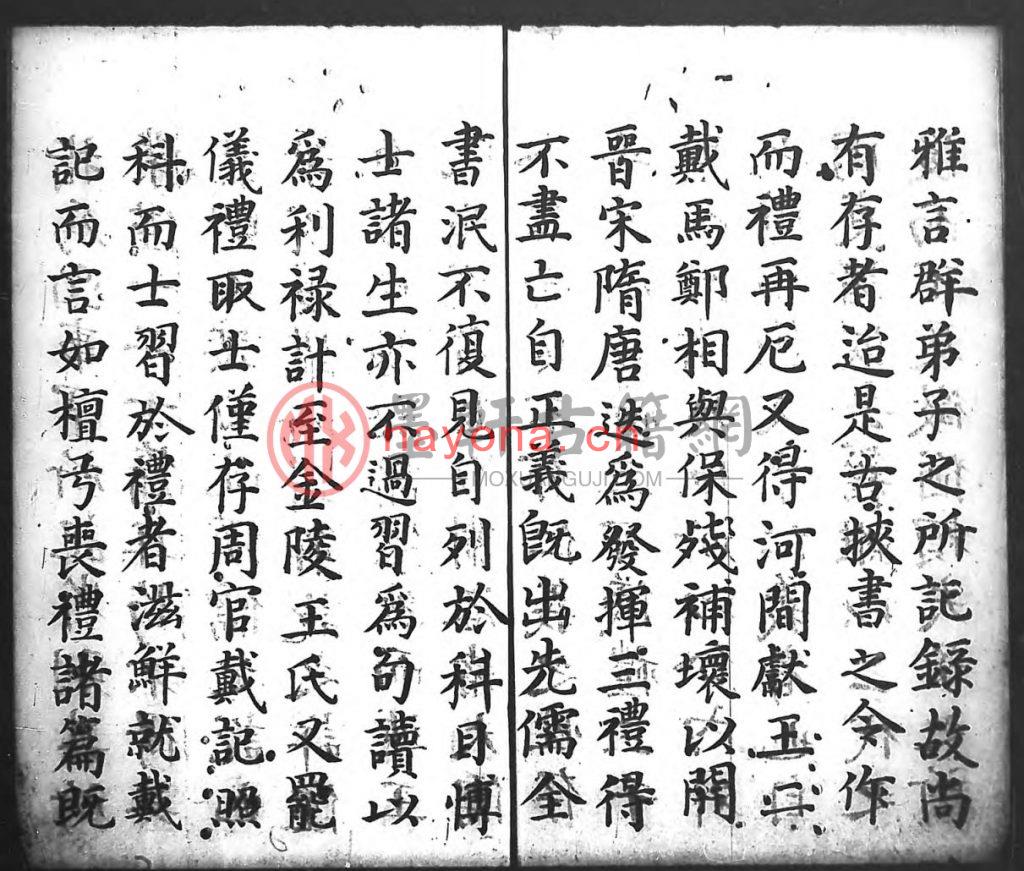 雅言群弟子之所記錄故尚
有存者迨是古挾書之令作
而禮再厄又得河間獻王二
戴馬鄭相與保殘補壞以開
晉宋隋唐迭爲發揮三禮得
不盡亡自正義既出先儒全
書泯不復見自列於科目博
士諸生亦不過習爲句讀以
爲利祿計至金陵王氏又罷
儀禮取士僅存周官戴記照
科而士習於禮者滋鮮就戴
記而言如檀弓喪禮諸篇既
墨軒古籍網
nayona.cn